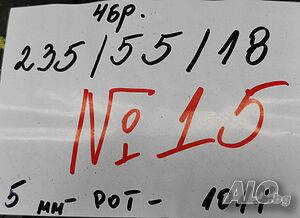 4бр.
235/55/18
№15
5 мм - DOT -
ALO.bg